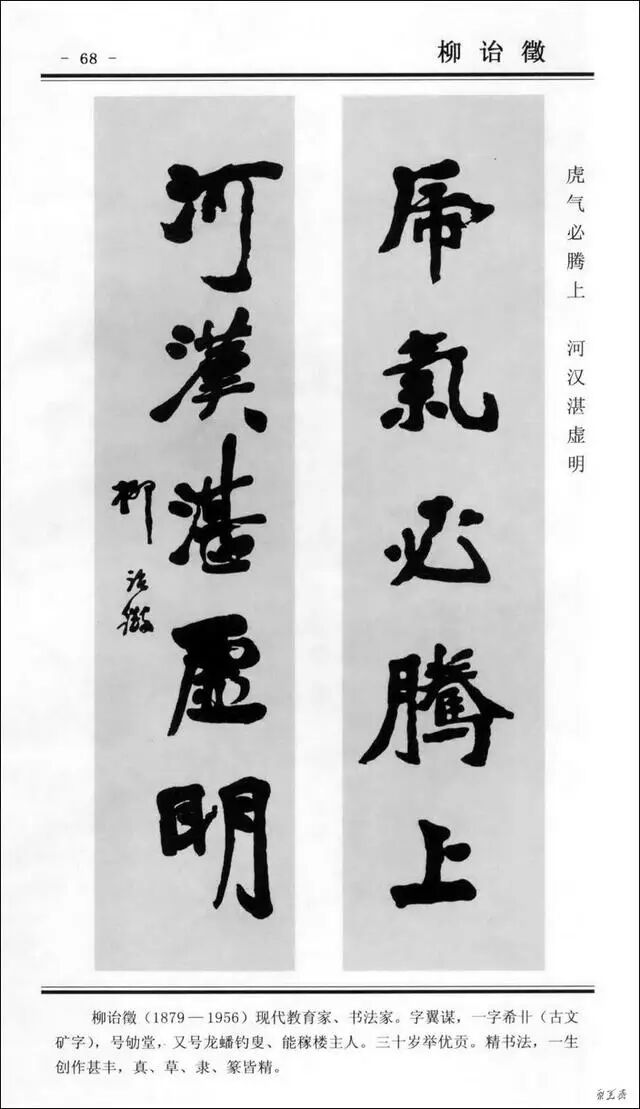 - 68 -
柳诒徵
虎气必腾上　河汉湛虚明
虎氣必騰上
河漢湛虛明
柳詒徵
柳诒徵（1879—1956）现代教育家、书法家。字翼谋，一字希卝（古文
矿字），号劬堂，又号龙蟠钓叟、能稼楼主人。三十岁举优贡。精书法，一生
创作甚丰，真、草、隶、篆皆精。